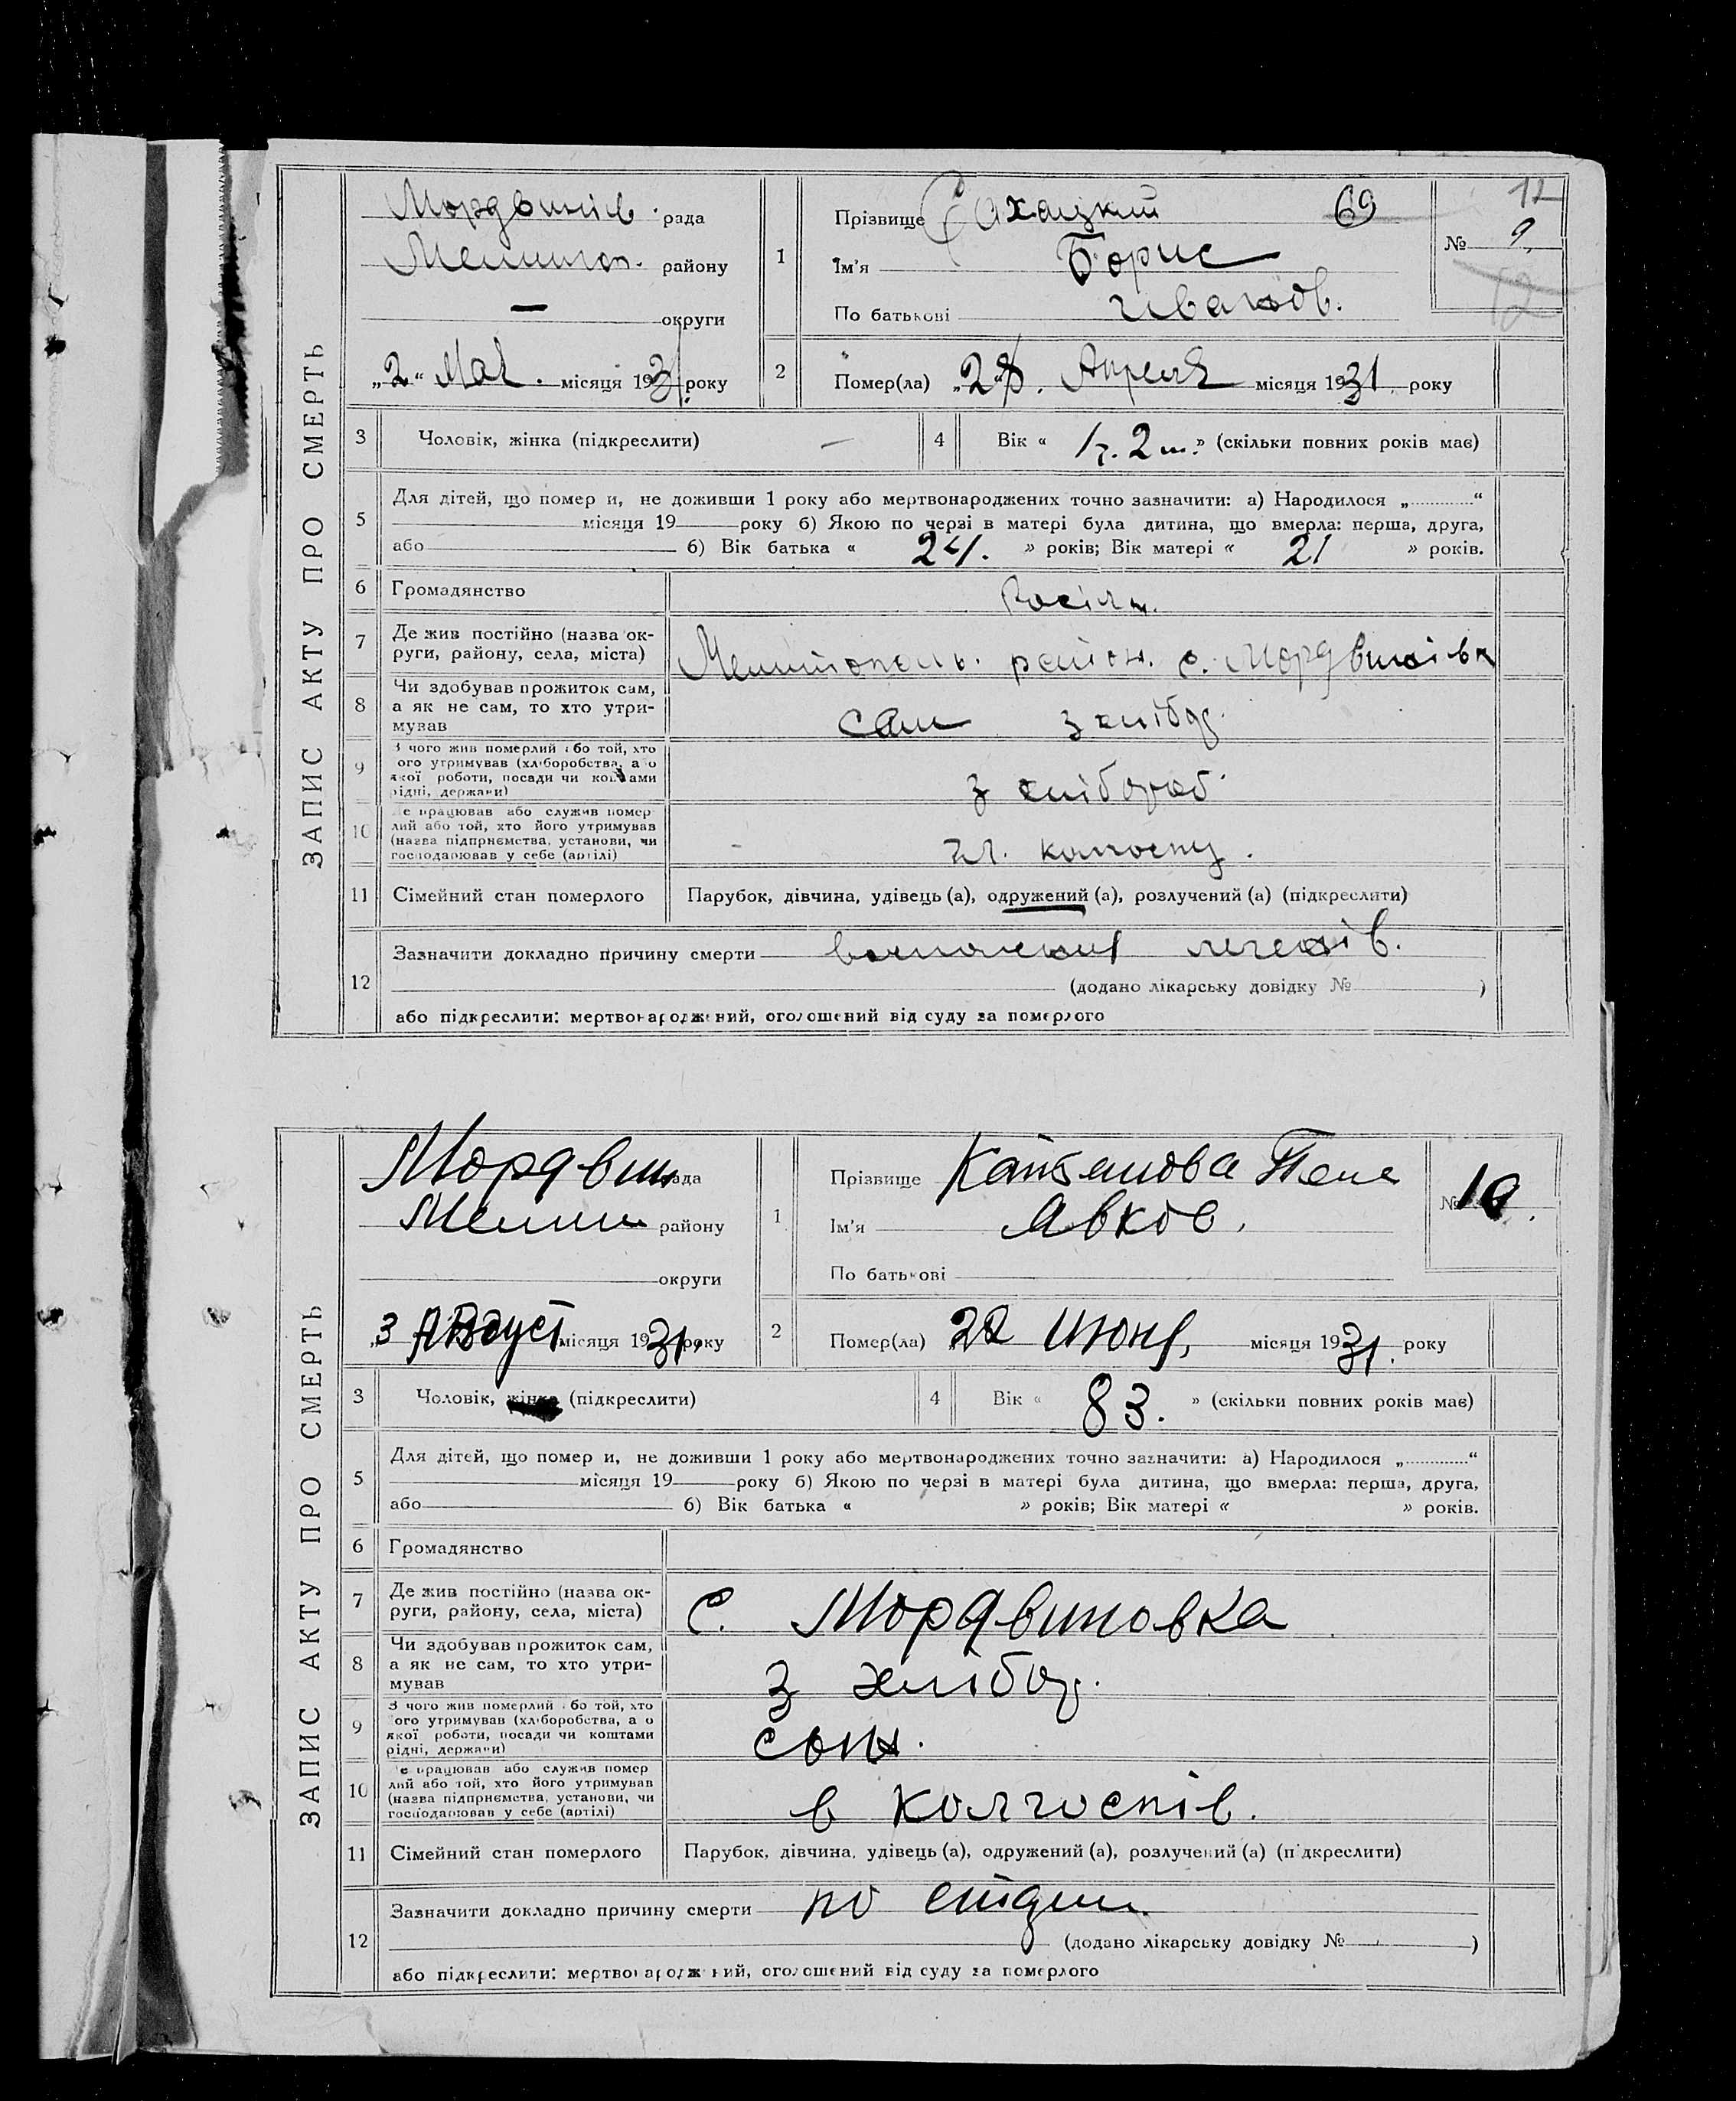 ЗАПИС АКТУ ПРО СМЕРТЬ
Мордвинів. рада
Мелитоп. району
— округи
„2“ Мая. місяця 1931. року
12
1 Прізвище Сахацкий 69
№ 9
12
Ім'я Борис
По батькові Иванов.
2 Помер(ла) „28. Апреля місяця 1931. року
3 Чоловік, жінка (підкреслити) —
4 Вік « 1 г. 2 м. » (скільки повних років має)
5 Для дітей, що помер и, не доживши 1 року або мертвонароджених точно зазначити: а) Народилося „ “
місяця 19 року б) Якою по черзі в матері була дитина, що вмерла: перша, друга,
або б) Вік батька « 24. » років; Вік матері « 21 » років.
6 Громадянство
7 Де жив постійно (назва ок-
руги, району, села, міста) Мелитополь. район. с. Мордвинівка
8 Чи здобував прожиток сам,
а як не сам, то хто утри-
мував сам з хлібор.
9 З чого жив померлий або той, хто
ого утримував (хліборобства, а о
якої роботи, посади чи коштами
рідні, держави) з хлібороб.
10 е працював або служив помер
лий або той, хто його утримував
(назва підприємства, установи, чи
господарював у себе (артілі) чл. колгоспу.
11 Сімейний стан померлого Парубок, дівчина, удівець (а), одружений (а), розлучений (а) (підкреслити)
12 Зазначити докладно причину смерти легенів.
(додано лікарську довідку № )
або підкреслити: мертвонароджений, оголошений від суду за померлого
ЗАПИС АКТУ ПРО СМЕРТЬ
Мордвин рада
Мелит району
округи
„3 Август місяця 1931, року
1 Прізвище
№ 10.
Ім'я
По батькові
2 Помер(ла) 28 Июня, місяця 1931. року
3 Чоловік, жінка (підкреслити)
4 Вік « 83. » (скільки повних років має)
5 Для дітей, що помер и, не доживши 1 року або мертвонароджених точно зазначити: а) Народилося „ “
місяця 19 року б) Якою по черзі в матері була дитина, що вмерла: перша, друга,
або б) Вік батька « » років; Вік матері « » років.
6 Громадянство
7 Де жив постійно (назва ок-
руги, району, села, міста) с. Мордвиновка
8 Чи здобував прожиток сам,
а як не сам, то хто утри-
мував з хлібор.
9 З чого жив померлий або той, хто
ого утримував (хліборобства, а о
якої роботи, посади чи коштами
рідні, держави)
10 е працював або служив помер
лий або той, хто його утримував
(назва підприємства, установи, чи
господарював у себе (артілі) в колгоспів.
11 Сімейний стан померлого Парубок, дівчина, удівець (а), одружений (а), розлучений (а) (підкреслити)
12 Зазначити докладно причину смерти по
(додано лікарську довідку № )
або підкреслити: мертвонароджений, оголошений від суду за померлого